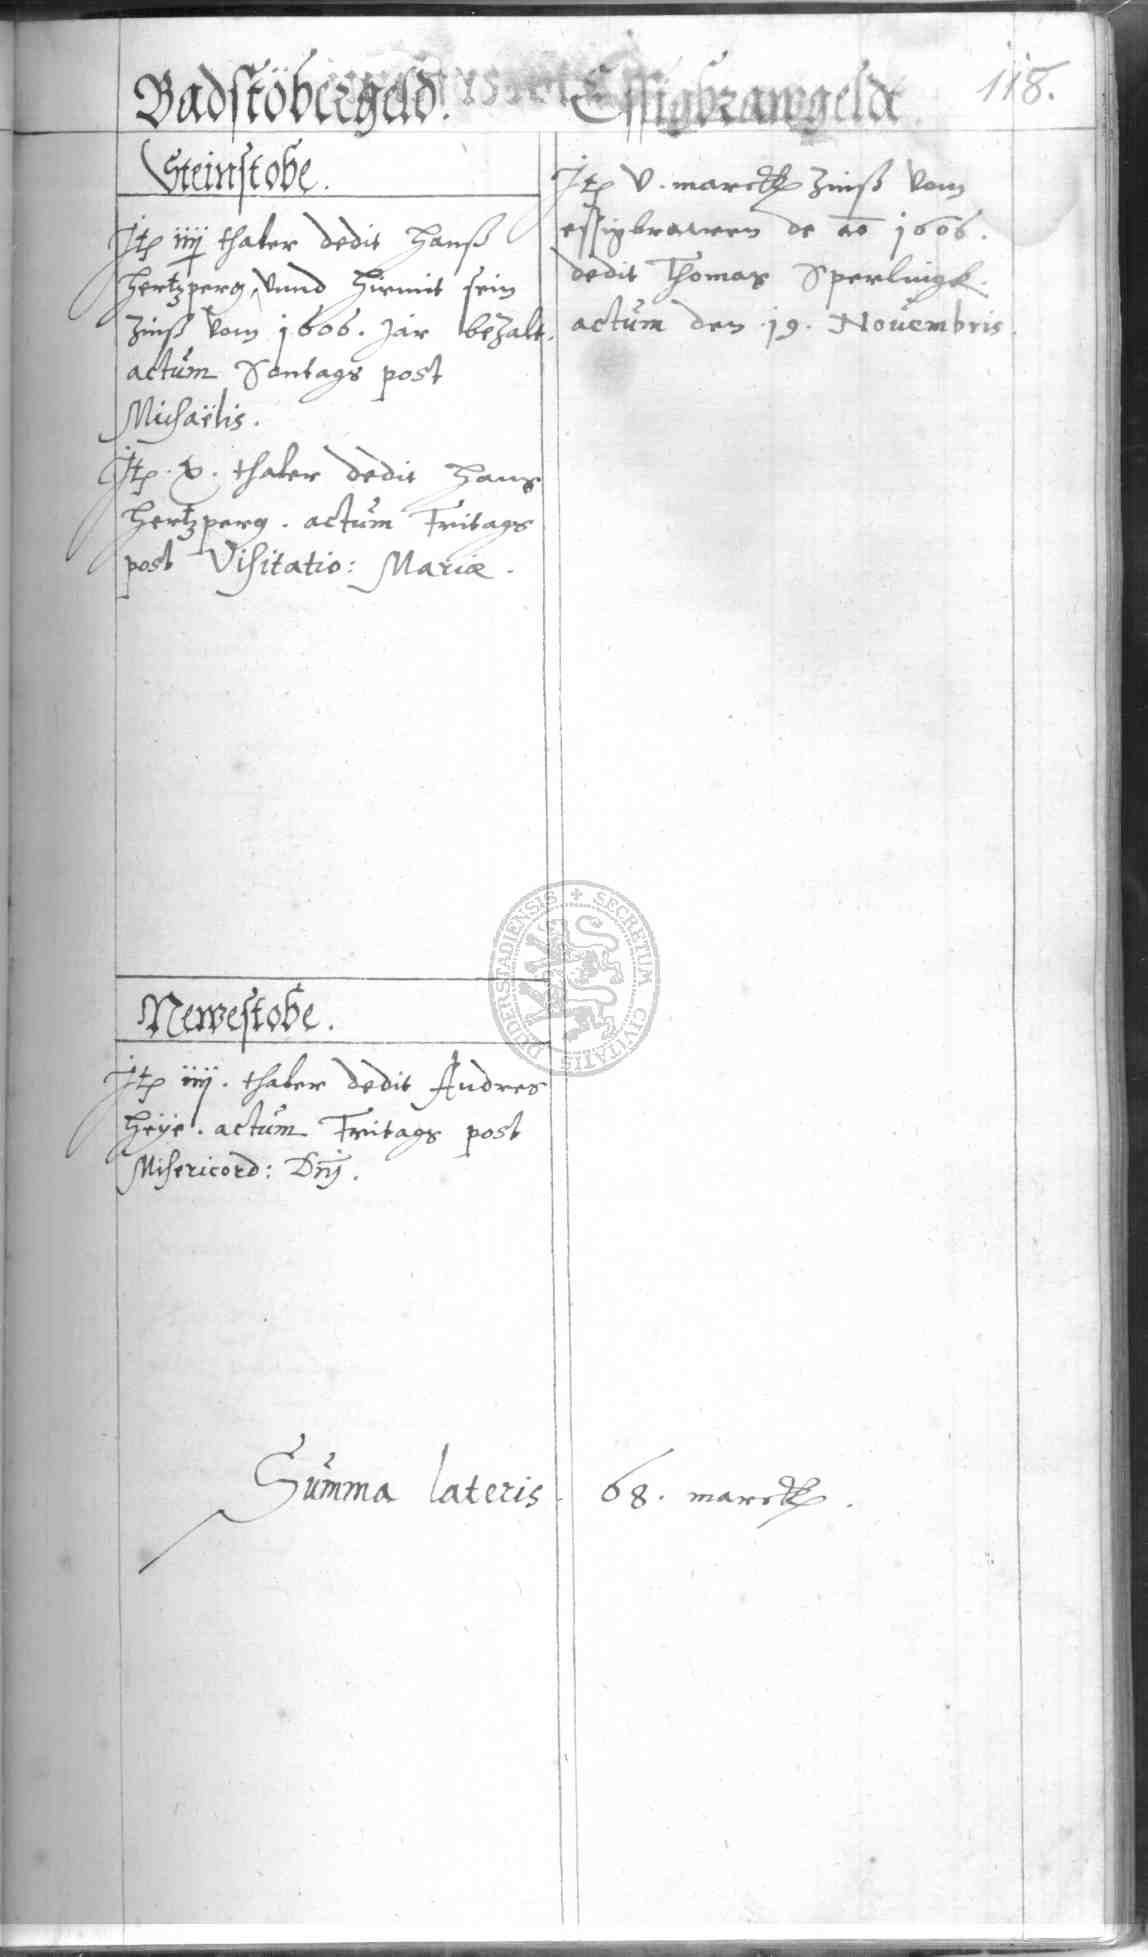 118.
Badstöbergeld.
Steinstobe.
Itp iiij thaler dedit Hanß
Hertzperg, vnnd hirmit sein
Zinß vom 1606. Jar bezalt.
actum Sontags post
Michaëlis.
Itp. v. thaler dedit Hans
Hertzperg. actum Fritags
post Visitatio: Mariæ.
Newestobe.
Itp iiij. thaler dedit Andres
Heÿe. actum Fritags post
Misericord: Dnj.
Essigbrawgeldt
Itp v. marck Zinß vom
essigbrawen de ao 1606.
dedit Thomas Sperlingk.
actum den 19. Nouembris.
Summa lateris. 68. marck.
SECRETUM CIVITATIS DUDERSTADIENSIS